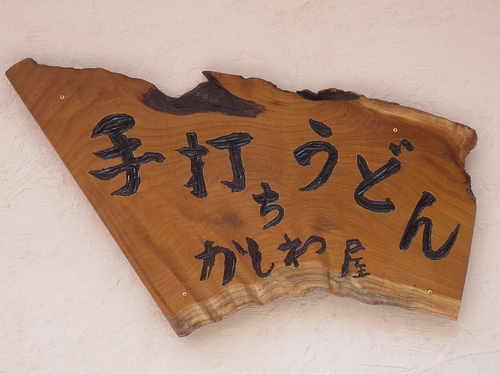 手打うどん
ちかしわ屋